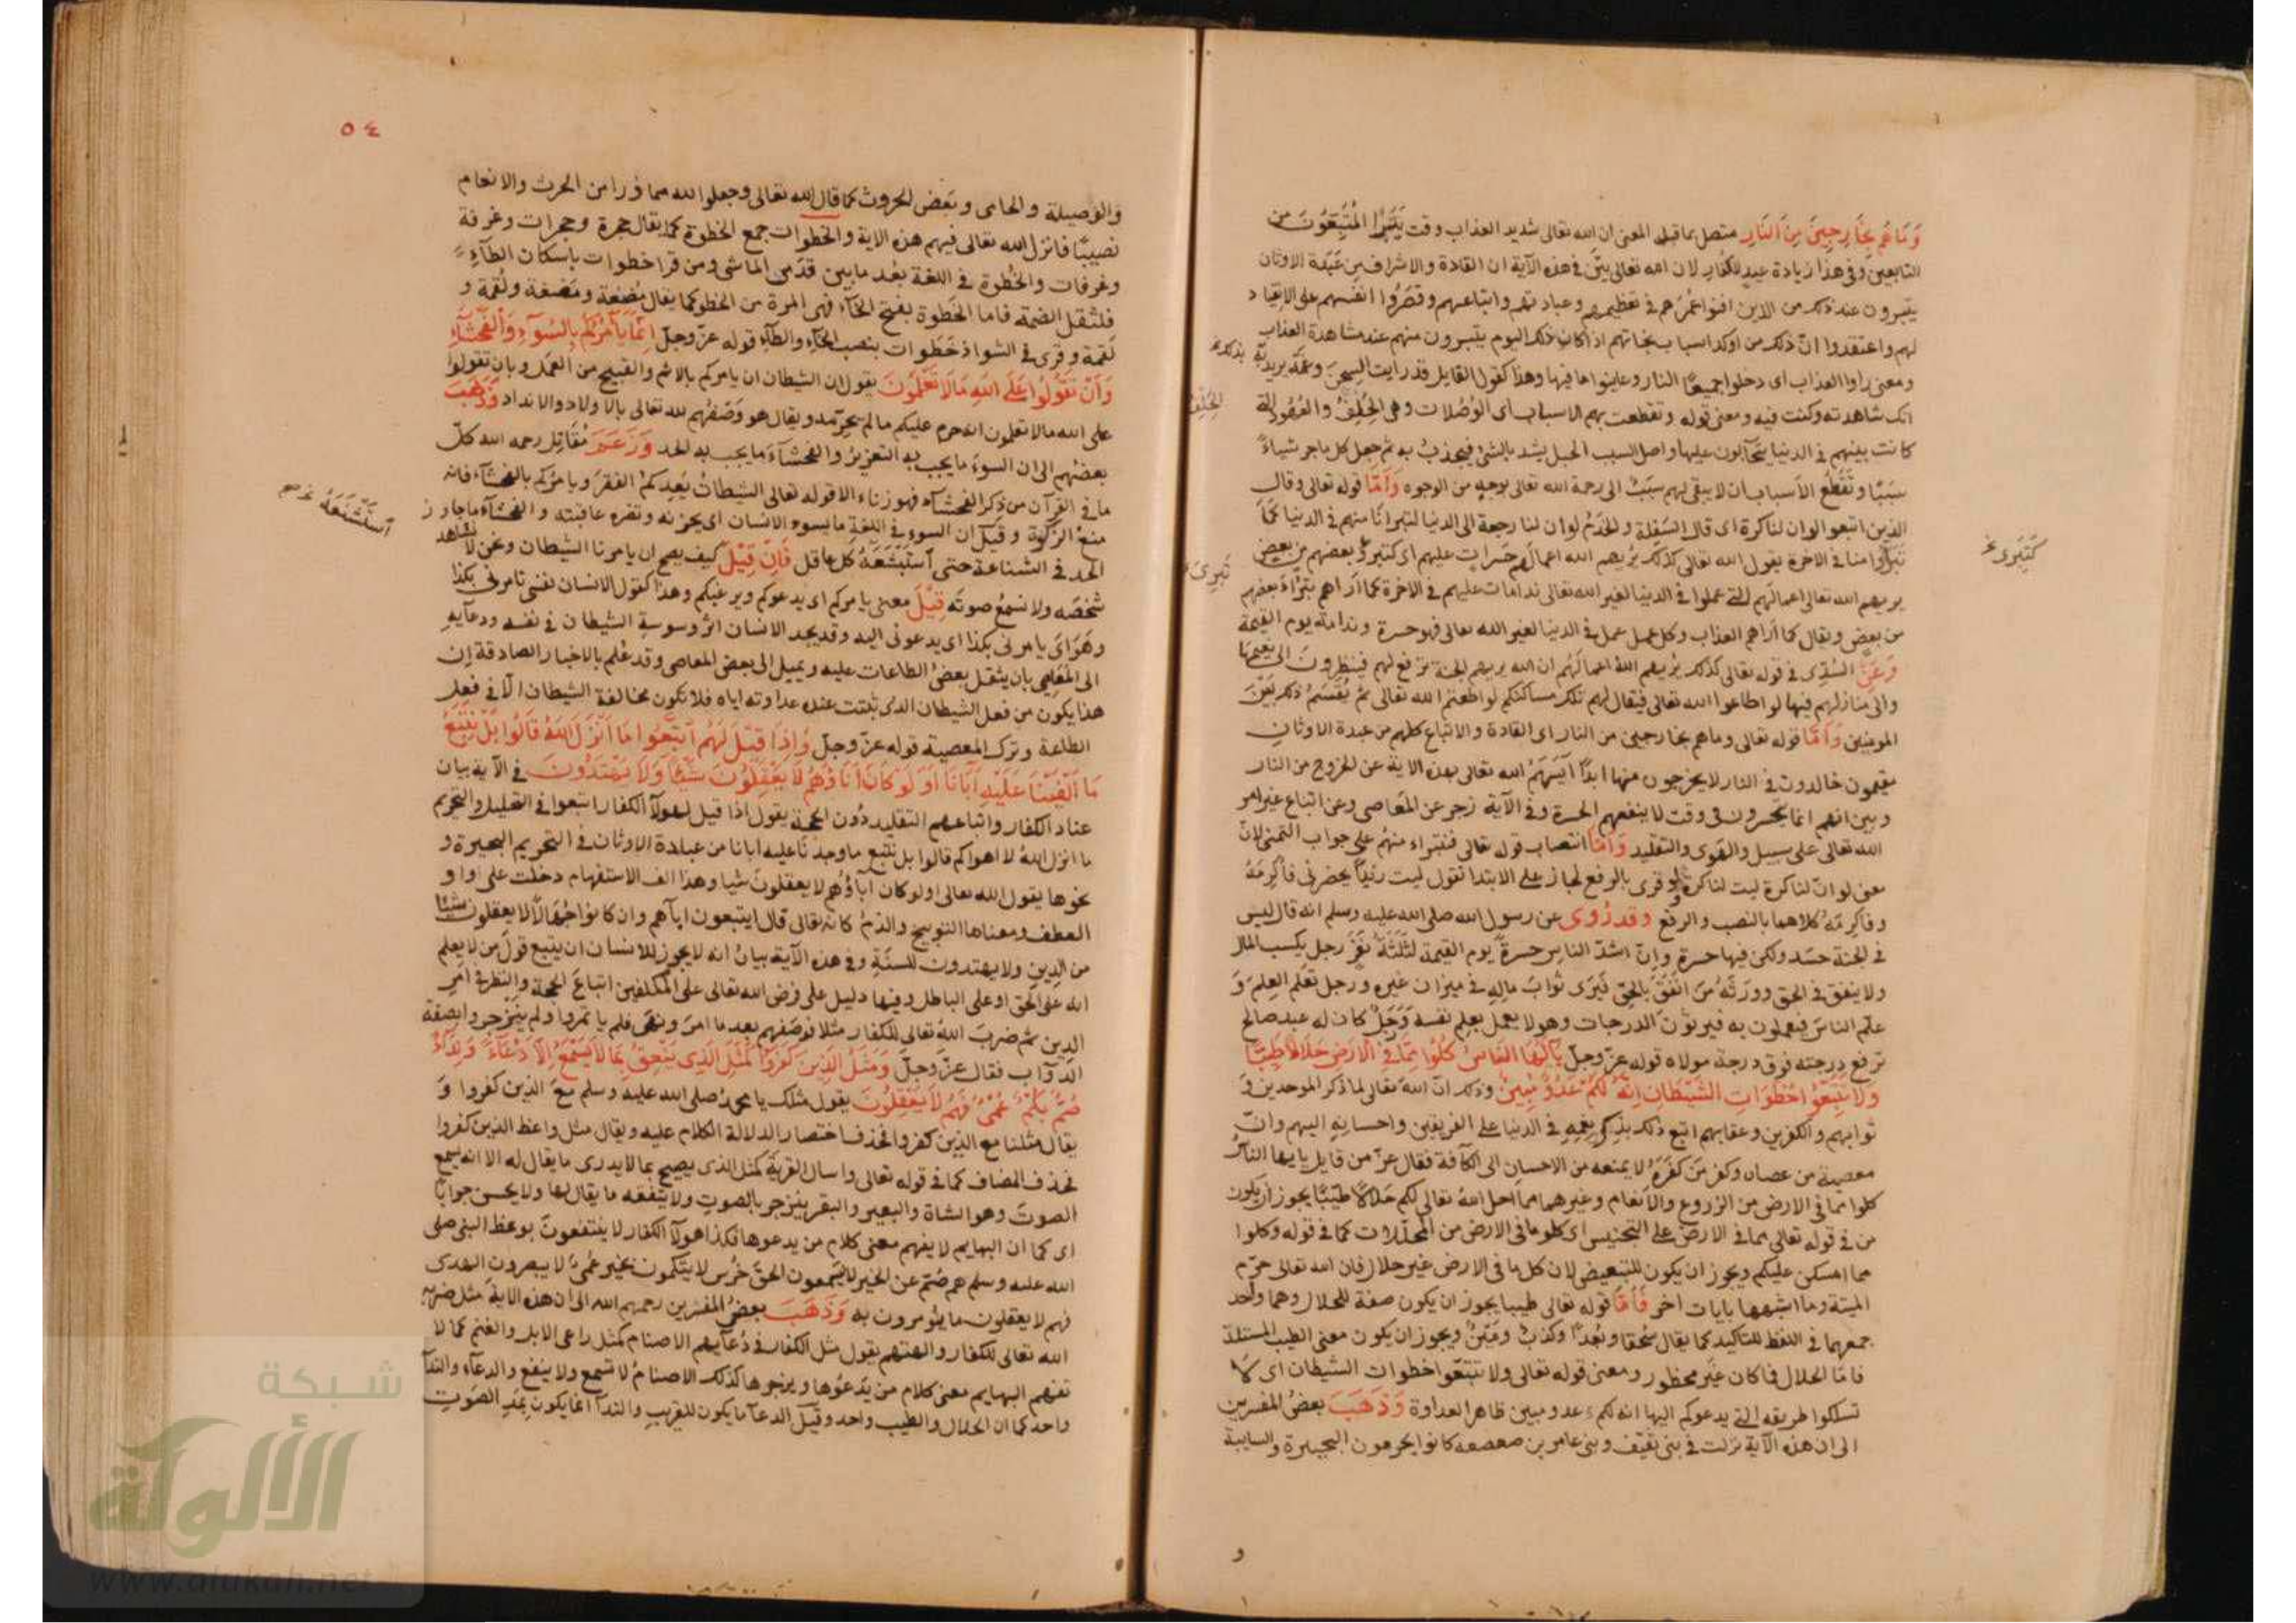 وَمَا هُم بِخَارِجِينَ مِنَ النَّارِ متصل بما قبله المعنى ان الله تعالى شديد العذاب وقت يَتَبَرَّأُ الْمُتَّبَعُونَ من
التابعين وفي هذا زيادة للكفار لان الله تعالى بيّن في هذه الآية ان القادة والاشراف من عَبَدة الاوثان
يتبرون عند ذلك من الذين افنوا عُمُرهم في تعظيمهم وعبادتهم واتباعهم وقصَرُوا انفسهم على الانقياد
لهم واعتقدوا انّ ذلك من اوكد اسباب نجاتهم اذا كان ذلك اليوم يتبرون منهم عند مشاهدة العذاب
ومعنى راوا العذاب اى دخلوا جميعًا النار وعاينوا ما فيها وهذا كقول القايل قد رايت السجن يريد به بذلك
انك شاهدته وكنت فيه ومعنى قوله وتقطعت بهم الاسباب اى الوُصُلات وهى الحِلْفُ والعُهُود التى
كانت بينهم في الدنيا يتحابون عليها واصل السبب الحبل يشد بالشئ فيجذبُ به ثم جعل كل ما جر شياءً
سَبَبًا وتقطُع الأسباب ان لا يبقى لهم سبَبٌ الى رحمة الله تعالى بوجهٍ من الوجوه وَأمَّا قوله تعالى وقال
الذين اتبعوا لو ان لنا كرة اى قال السَفِلة والخَدَمُ لو ان لنا رجعة الى الدنيا لنتبرا منهم في الدنيا كما
تبرّؤا منا في الاخرة يقول الله تعالى كذلك يُريهم الله اعمالهم حَسَراتٍ عليهم اى كتبرؤ بعضهم من بعض
يريهم الله تعالى اعمالَهم التى عملوا في الدنيا لغير الله تعالى ندامات عليهم في الاخرة كما اَراهم تبرُّاءَ بعضهم
من بعضٍ ويقال كما اَراهم العذاب وكل عمل عمل في الدنيا لغير الله تعالى فهو حسرة وندامة يوم القيمة
وَعَنِ السُّدِّى في قوله تعالى كذلك يُريهم اللهُ اعمالَهُم ان الله يريهم الجنة ترفع لهم فينظرونَ الى نعيمها
والى منازلهم فيها لو اطاعوا الله تعالى فيقال لهم تلك مساكنكم لو اطعتم الله تعالى ثم تُقسَمُ ذلك بَيْنَ
المومنين وَأمَّا قوله تعالى وما هم بخارجين من النار اى القادة والاتباع كلهم من عبدة الاوثان
مقيمون خالدون في النار لا يخرجون منها ابدًا آيَسَهُمُ الله تعالى بهذه الاية عن الخروج من النار
وبين انهم انما يتحسرون في وقت لا ينفعهم الحسرة وفي الآية زجر عن المَعَاصى وعن اتباع غير امر
الله تعالى على سبيل والهَوى والتقليد وَأمَّا انتصاب قوله تعالى فنتبراء منهُم على جواب التمنى لانّ
معنى لو انّ لنا كرة ليت لنا كرة ولو قرى بالرفع لجاز على الابتدا تقول ليت رزيدًا يحضرنى فأُكرِمَهُ
وفأكرِمُهُ كلاهما بالنصب والرفع وقد رُوى عن رسول الله صلى الله عليه وسلم انه قال ليس
في الجنة حسَد ولكن فيها حسرة وانّ اشدّ الناس حسرةً يوم القيمة لثلثةُ نَفَرٍ رجل يكسب المال
ولا ينفق في الحق وورثَهُ مَن انفَقَ بالحقّ فيَرَى ثوابَ مالِهِ في ميزان غيره ورجل تَعلّم العِلمَ وَ
علّم الناسَ فيعملون به فيرثونَ الدرجات وهو لا يعمل بعِلم نفسه وَرَجلٌ كان له عبد صالح
ترفع درجته فوق درجة مولاه قوله عزّ وجلّ يَا أَيُّهَا النَّاسُ كُلُوا مِمَّا فِي الْأَرْضِ حَلَالًا طَيِّبًا
وَلَا تَتَّبِعُوا خُطُوَاتِ الشَّيْطَانِ إِنَّهُ لَكُمْ عَدُوٌّ مُبِينٌ وذلك انّ اللهَ تعالى لما ذكر الموحدين وَ
ثوابهم والكفرين وعقابهم اتبع ذلك بذِكرِ نِعَمِهِ في الدنيا على الفريقين واحسانِهِ اليهم وانّ
معصيةَ من عصاه وكفرَ مَن كفَرَهُ لا يمنعه من الاحسانِ الى الكآفة فقال عزّ من قايل يا ايها الناسُ
كلوا مما في الارض من الزروع والأنعام وغيرهما مما احل اللهُ تعالى لكم حَلالًا طَيّبًا يجوز ان يكون
من في قوله تعالى مما في الارض على التجنيس اى كلوا ما في الارض من المحلّلات كما في قوله وكلوا
مما امسكن عليكم ويجوز ان يكون للتبعيض لان كل ما في الارض غير حلال فان الله تعالى حرّم
الميتة وما اشبهها بايات اخر فَأمَّا قوله تعالى طيبا يجوز ان يكون صفة للحلال وهما واحد
جمعهما في اللفظ للتاكيد كما يقال سُحقا وبُعدًا وكذبٌ ومَيْنٌ ويجوز ان يكون معنى الطيب المستلذّ
فامّا الحلال فما كان غيرَ محظور ومعنى قوله تعالى ولا تتبعوا خطوات الشيطان اى لا
تسلكوا طريقه التى يدعوكم اليها انه لكم عدو مبين ظاهر العداوة وَذَهَبَ بعضُ المفسرين
الى ان هذه الآية نزلت في بنى ثقيف وبنى عامر بن صعصعه كانوا يحرمون البحيرة والسايبة
و
كَتَبَرِى خ
تَبَرِى
الحِلْفُ
٥٤
والوَصيلة والحامى وبَعض الحروث كما قال الله تعالى وجعلوا لله مما ذرا من الحرث والانعام
نصيبًا فانزل الله تعالى فيهم هذه الاية والخطوات جمع الخطوة كما يقال حجرة وحجرات وغرفة
وغرفات والخُطوة في اللغة بُعد ما بين قدَمى الماشى ومن قرا خطوات باسكان الطآءِ
فلثقل الضمة فاما الخَطوة بفتح الخآء فهى المرة من الخطو كما يقال مُضغة ومَضغة ولُقمة و
لَقمة وقرى في الشواذ خَطَوات بنصب الخآءِ والطآءِ قوله عزّ وجلّ إِنَّمَا يَأْمُرُكُم بِالسُّوٓءِ وَالْفَحْشَآءِ
وَأَنْ تَقُولُوا عَلَى اللهِ مَا لَا تَعْلَمُونَ يقول ان الشيطان ان يامركم بالاثم والقبيح من العمل وبان تقولوا
على الله مالا تعلمون انه حرم عليكم مالم يحرّمه ويقال هو وَصْفُهُم لله تعالى بالاولاد والانداد وَذَهَبَ
بعضهم الى ان السوءَ ما يجب به التعزيرُ والفحشآءَ ما يجب به الحد وَزَعَمَ مُقَاتِل رحمه الله كلّ
ما في القرآن من ذكر الفحشآء فهو زناء الا قوله تعالى الشيطانُ يَعِدكمُ الفَقرَ ويامُركم بالفحشآء فانه
منعُ الزكوة وقيل ان السوء في اللغة ما يسوء الانسان اى يحزنه وتضره عاقبته والفحشآءَ ما جاوز
الحد في الشناعة حتى اَستَبْشَعَهُ كل عاقل فَإِنْ قِيْلَ كيف يصح ان يامرنا الشيطان ونحن لا نشاهد
شخصَه ولا نسمعُ صوتَه قِيْلَ معنى يامركم اى يدعوكم ويرغبكم وهذا كقول الانسان نفسى تامرنى بكذا
وهَوَاىَ يامرنى بكذا اى يدعونى اليه وقد يجد الانسان اثر وسوسة الشيطان في نفسه ودعآيهِ
الى المَعَاصى بان يثقل بعضُ الطاعات عليه ويميل الى بعض المعاصى وقد عُلم بالاخبار الصادقة ان
هذا يكون من فعل الشيطان الذى ثبتت عنده عداوته اياه فلا تكون مخالفة الشيطان الّا في فعل
الطاعة وترك المعصية قوله عزّ وجلّ وَإِذَا قِيْلَ لَهُمُ اتَّبِعُوا مَا أَنْزَلَ اللهُ قَالُوا بَلْ نَتَّبِعُ
مَا أَلْفَيْنَا عَلَيْهِ آبَآنَا أَوَلَوْ كَانَ آبَاؤُهُمْ لَا يَعْقِلُونَ شَيْئًا وَلَا يَهْتَدُونَ في الآية بيان
عناد الكفار واتباعهم التقليد دُون الحجة يقول اذا قيل لهولآ الكفار اتبعوا في التحليل والتحريم
ما انزل اللهُ لا اهواكم قالوا بل نتبع ما وجدنا عليه ابانا من عبادة الاوثان في التحريم البحيرة و
نحوها يقول الله تعالى اولو كان آباؤهُم لا يعقلونَ شيا وهذا الف الاستفهام دخلت على واو
العطف ومعناها التوبيخ والذمّ كانه تعالى قال ايتبعون ابآهم وان كانوا جُهّالًا لا يعقلون شيئًا
من الدِينِ ولا يهتدون للسنّةِ وفي هذه الآية بيانُ انه لا يجوز للانسان ان يتبع قولَ من لا يعلم
انه على الحق او على الباطل وفيها دليل على فرض الله تعالى على المكلفين اتباعَ الحجة والنظر في امر
الدين ثم ضربَ اللهُ تعالى للكفار مثلا فوصَفهم بعد ما امرَ ونهَى فلم ياتمروا ولم ينزجروا بصفة
الدوآب فقال عزّ وجلّ وَمَثَلُ الَّذِينَ كَفَرُوا كَمَثَلِ الَّذِي يَنْعِقُ بِمَا لَا يَسْمَعُ إِلَّا دُعَآءً وَنِدَآءً
صُمٌّ بُكْمٌ عُمْيٌ فَهُمْ لَا يَعْقِلُونَ يقول مثلك يا محمدُ صلى الله عليه وسلم مع الذين كفروا وَ
يقال مثلنا مع الذين كفروا فحذف اختصارا لدلالة الكلام عليه ويقال مثل واعظ الذين كفروا
فحذف المضاف كما في قوله تعالى واسال القرية كمثل الذى يصيح بما لا يدرى ما يقال له الا انه يسمع
الصوتَ وهو الشاة والبعير والبقر ينزجر بالصوتِ ولا يتفقه ما يقال لها ولا يحسن جوابًا
اى كما ان البهايم لا يفهم معنى كلام من يدعوها فكذا هولآ الكفار لا ينتفعونَ بوعظ النبى صلى
الله عليه وسلم هم صُمّ عن الخير لا يسمعون الحقَّ خُرس لا يتكلمون بخير عُمىٌ لا يبصرون الهدى
فهم لا يعقلون ما يؤمرون به وَذَهَبَ بعضُ المفسرين رحمهم الله الى ان هذه الاية مَثل ضربه
الله تعالى للكفار والهتهم يقول مثل الكفار في دُعآيهم الاصنام كمثل راعى الابل والغنم كما لا
تفهم البهايم معنى كلام من يدعُوها ويزجرها كذلك الاصنامُ لا تسمع ولا ينفع والدعآء والندآ
واحد كما ان الحلال والطيب واحد وقيل الدعآ ما يكون للقريبِ والندآ انما يكون بمدِ الصَوتِ
اَستَشْنَعَهُ خ صح
شبكة
الألوكة
www.alukah.net